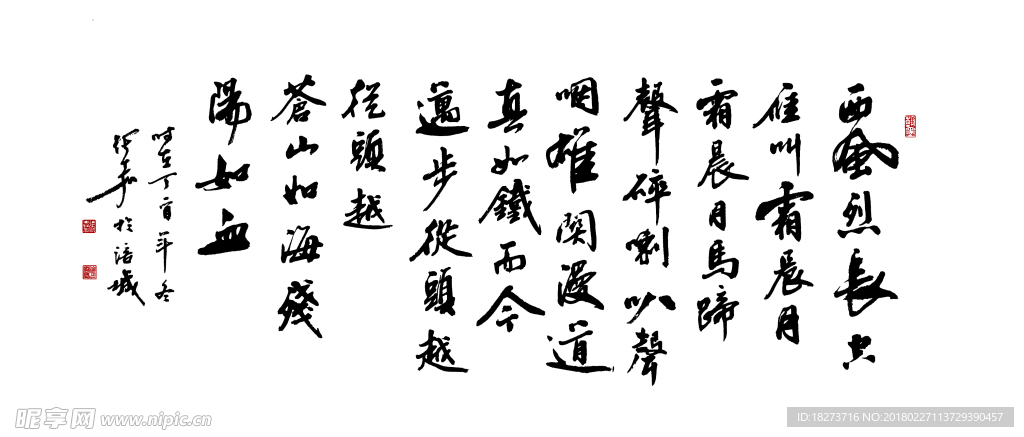 西風烈長空
雁叫霜晨月
霜晨月馬蹄
聲碎喇叭聲
咽雄関漫道
真如鐵而今
邁步從頭越
從頭越
蒼山如海殘
陽如血
時在丁酉年冬
於涪城
昵享网 www.nipic.cn
ID:18273716 NO:20180227113729390457